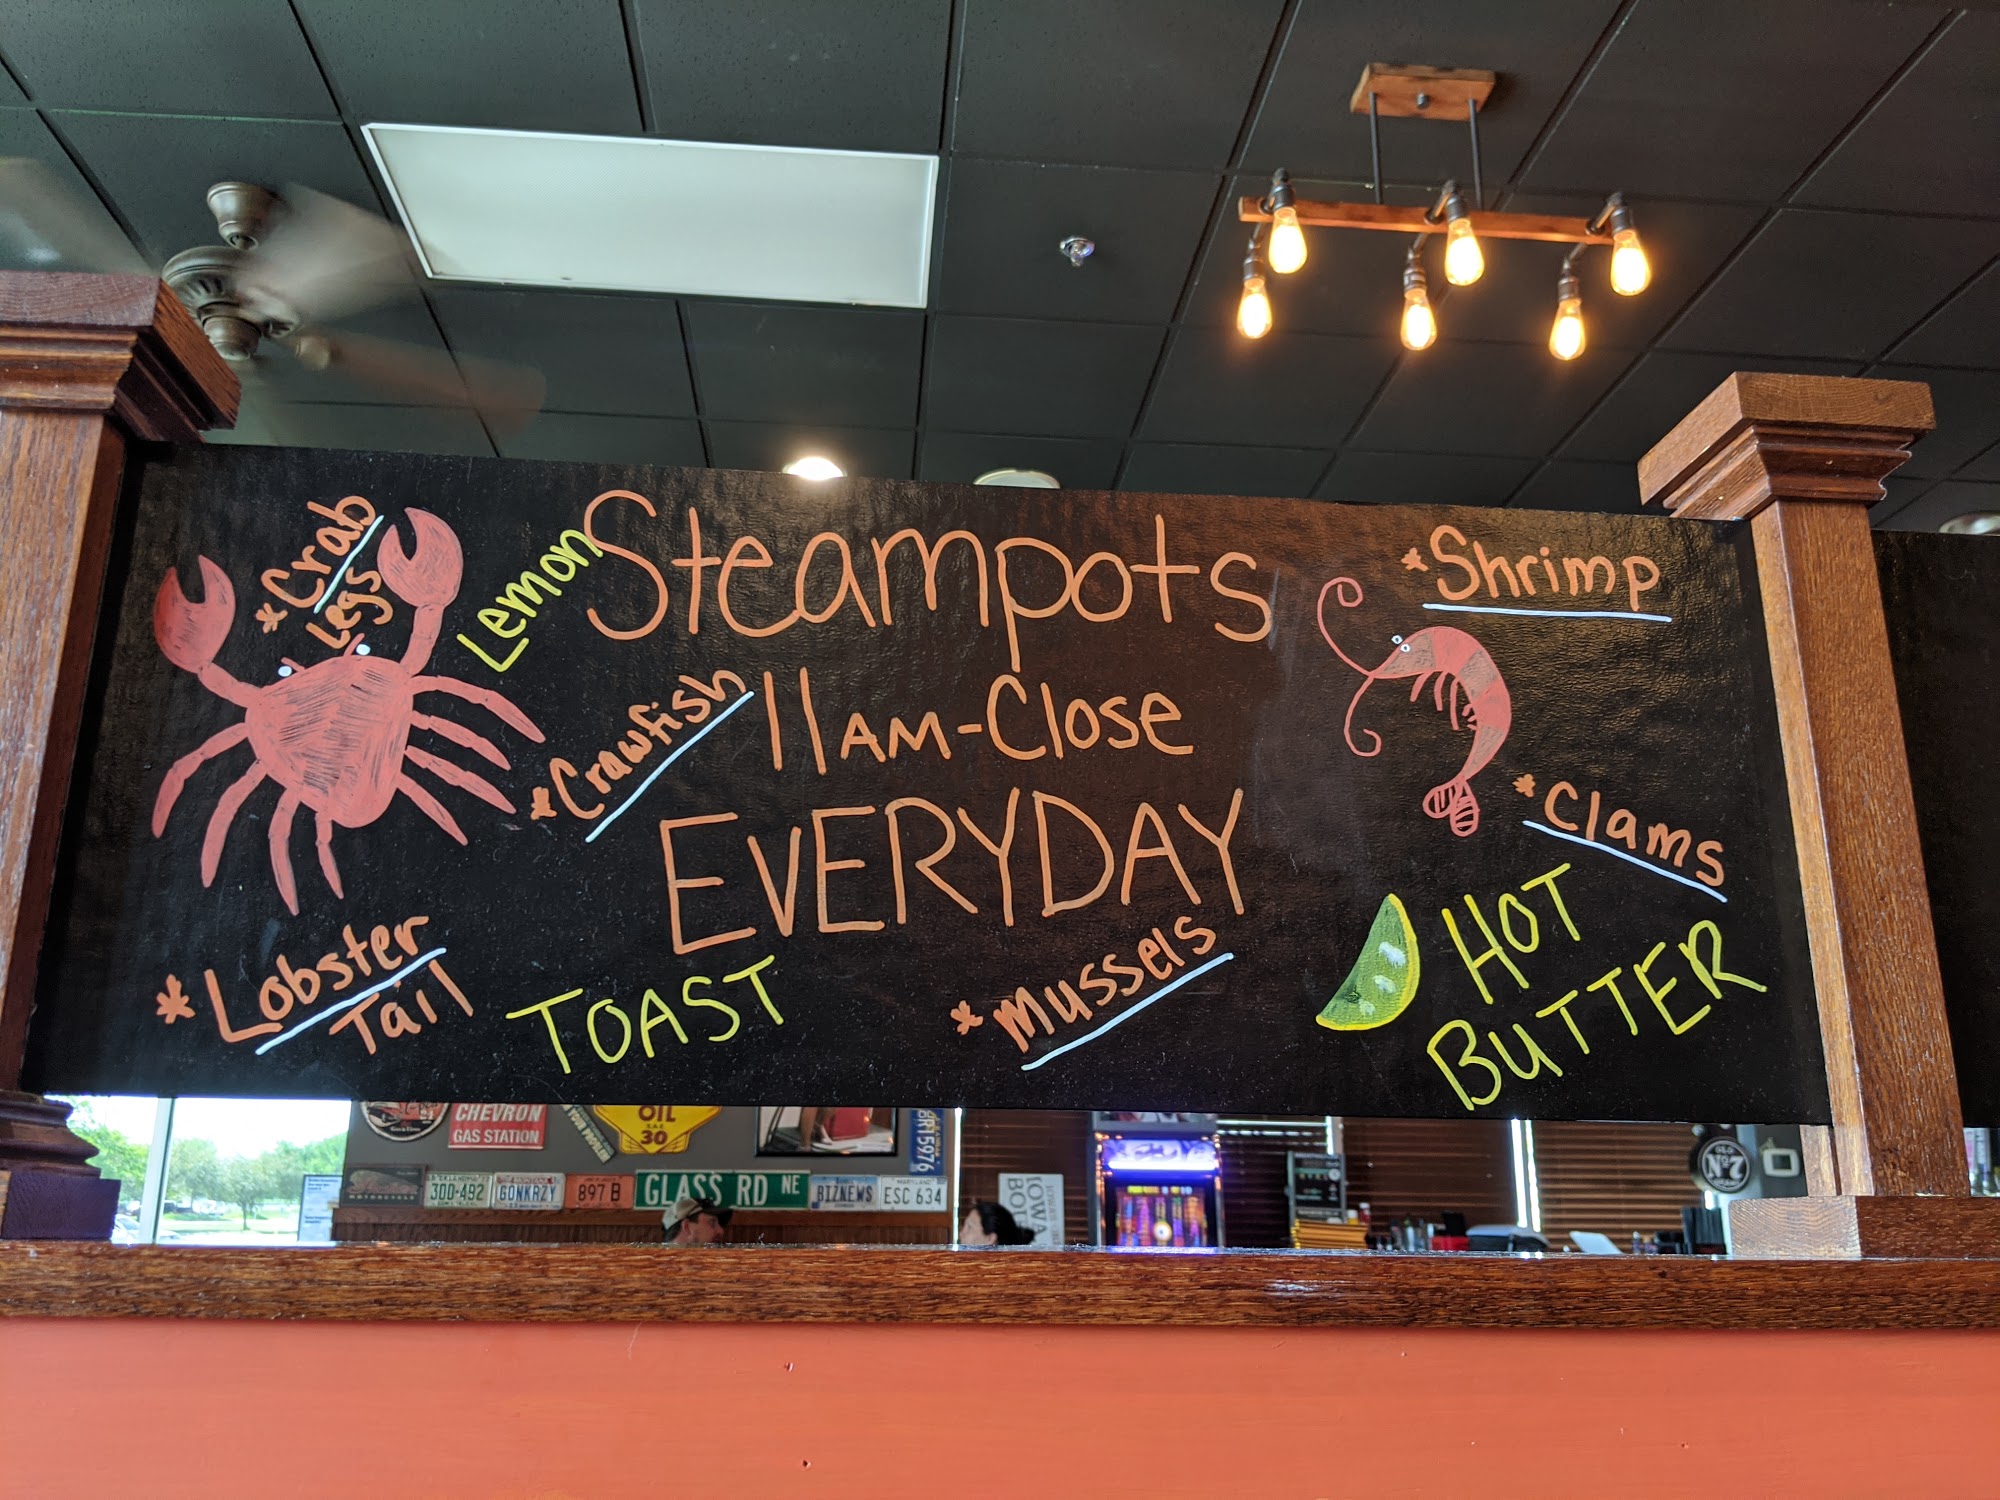 *Crab
Legs
Lemon
Steampots
*Shrimp
*Crawfish
11AM-Close
*Clams
EVERYDAY
*Lobster
Tail
TOAST
*Mussels
HOT
BUTTER
CHEVRON
GAS STATION
OIL
S.A.E.
30
300-492
GONKRZY
897 B
GLASS RD NE
BIZNEWS
MARYLAND
ESC 634
BR 5976
MOTORCYCLE
IOWA
OLD
No. 7